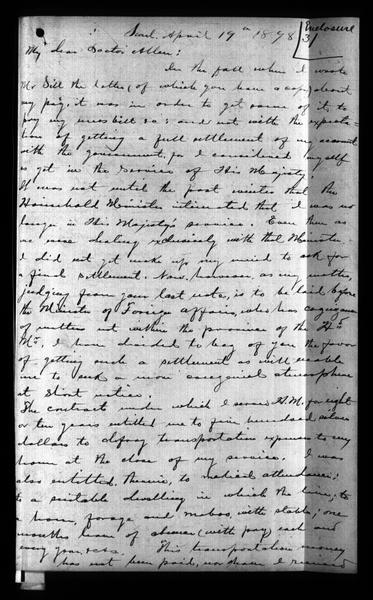 Enclosure
3
Seoul, April 19th 1898
My dear Doctor Allen:
In the fall when I wrote
Mr Sill the letter (of which you have a copy) about
my pay, it was in order to get some of it to
pay my mess bill &c: and not with the expecta-
tion of getting a full settlement of my account
with the government, for I considered myself
as yet in the service of His Majesty.
It was not until the past winter that the
Household Minister intimated that I was no
longer in His Majesty's service. Even then as
we were dealing exclusively with that Minister
I did not yet make up my mind to ask for
a final settlement. Now, however, as my matter,
judging from your last note, is to be laid before
the Minister of Foreign Affairs, who has cognizance
of matters not within the province of the Hd
Mr, I have decided to beg of you the favor
of getting such a settlement as will enable
me to seek a more congenial atmosphere
at short notice.
The contract under which I served H.M. for eight
or ten years entitled me to five hundred
dollars to defray transportation expenses to my
home at the close of my service. I was
also entitled, therein, to medical attendance;
to a suitable dwelling in which to live; to
a horse, forage and with stable; one
months leave of absence (with pay) each and
every year, &c &c. This transportation money
has not been paid, nor have I received